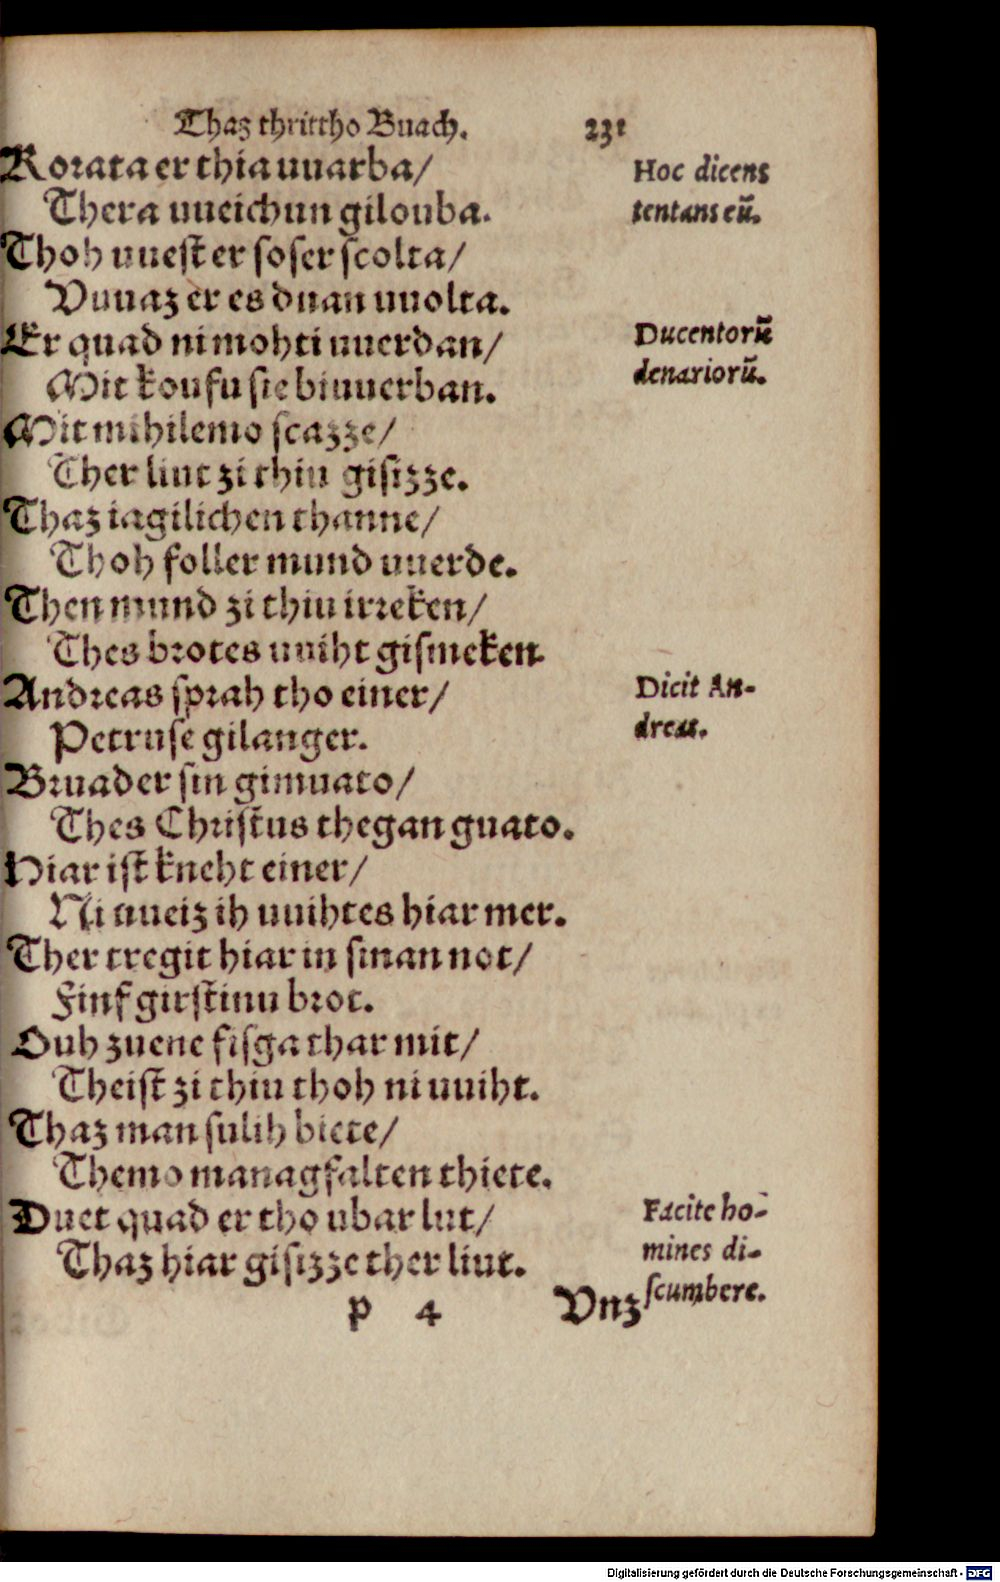 Thaz thrittho Buach. 231
Rorata er thia uuarba/
Thera uueichun gilouba.
Thoh uuest er so ser scolta/
Vuuaz er es duan uuolta.
Er quad ni mohti uuerdan/
Mit koufu sie biuuerban.
Mit mihilemo scazze/
Ther liut zi thiu gisizze.
Thaz iagilichen thanne/
Thoh foller mund uuerde.
Then mund zi thiu irreken/
Thes brotes uuiht gismeken.
Andreas sprah tho einer/
Petruse gilanger.
Bruader sin gimuato/
Thes Christus thegan guato.
Hiar ist kneht einer/
Ni uueiz ih uuihtes hiar mer.
Ther tregit hiar in sinan not/
Finf girstinu brot.
Ouh zuene fisga thar mit/
Theist zi thiu thoh ni uuiht.
Thaz man sulih biete/
Themo managfalten thiete.
Duet quad er tho ubar lut/
Thaz hiar gisizze ther liut.
p 4 Vnz
Hoc dicens
tentans eū.
Ducentorū
denariorū.
Dicit An-
dreas.
Facite ho-
mines di-
scumbere.
Digitalisierung gefördert durch die Deutsche Forschungsgemeinschaft - DFG